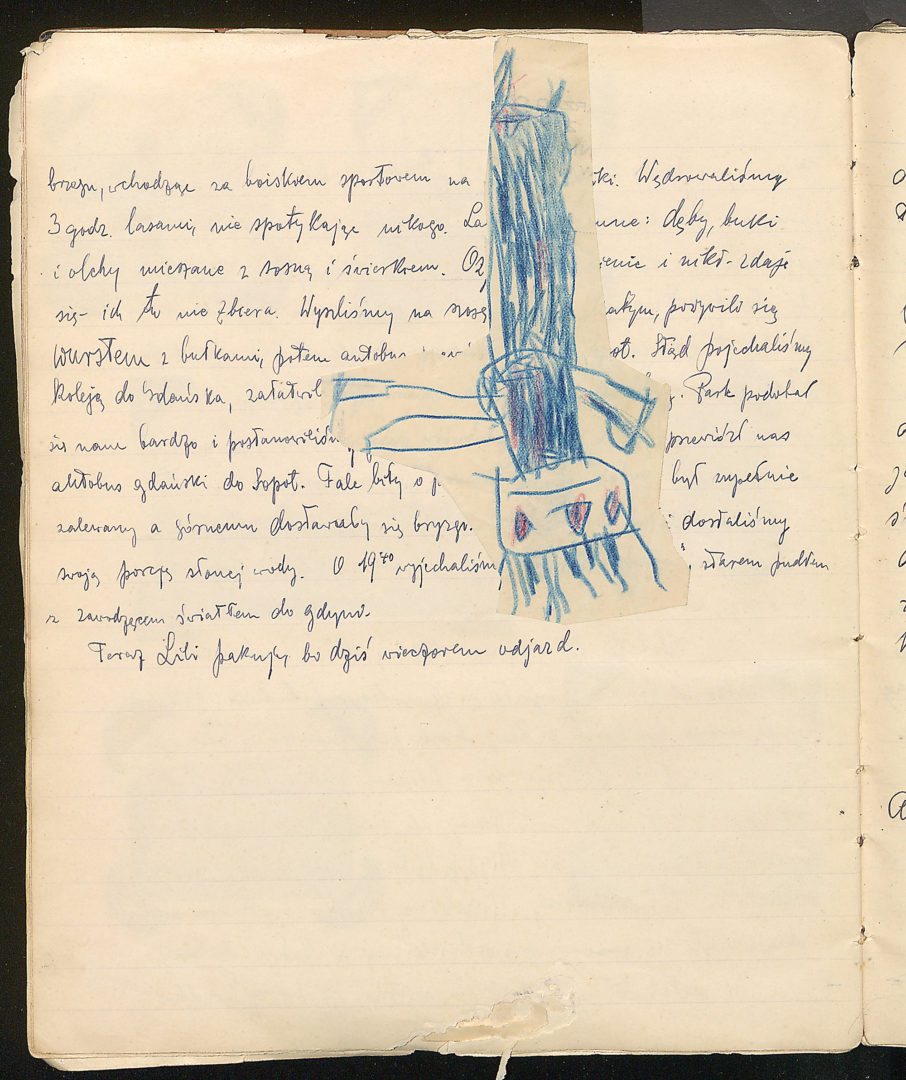 brzegu, wchodząc za boiskiem sportowem na ki. Wędrowaliśmy
3 godz. lasami, nie spotykając nikogo. La une: dęby, buki
i olchy mieszane z sosną i świerkiem. enie i nikt - zdaje
się - ich tu nie zbiera. Wyszliśmy na szos małym, pożywili się
wurstem z bułkami, potem autobus ot. Stąd pojechaliśmy
koleją do Gdańska, załatwil . Park podobał
się nam bardzo i postanowiliśm przewiózł nas
autobus gdański do Sopot. Fale biły o był zupełnie
zalewany a górnemu dostawały się bryzgi. i dostaliśmy
swoją porcję słonej wody. O 19⁴⁰ wyjechaliśm , starem pudłem
z zawodzącem światłem do Gdyni.
Teraz Lili pakuję, bo dziś wieczorem odjazd.